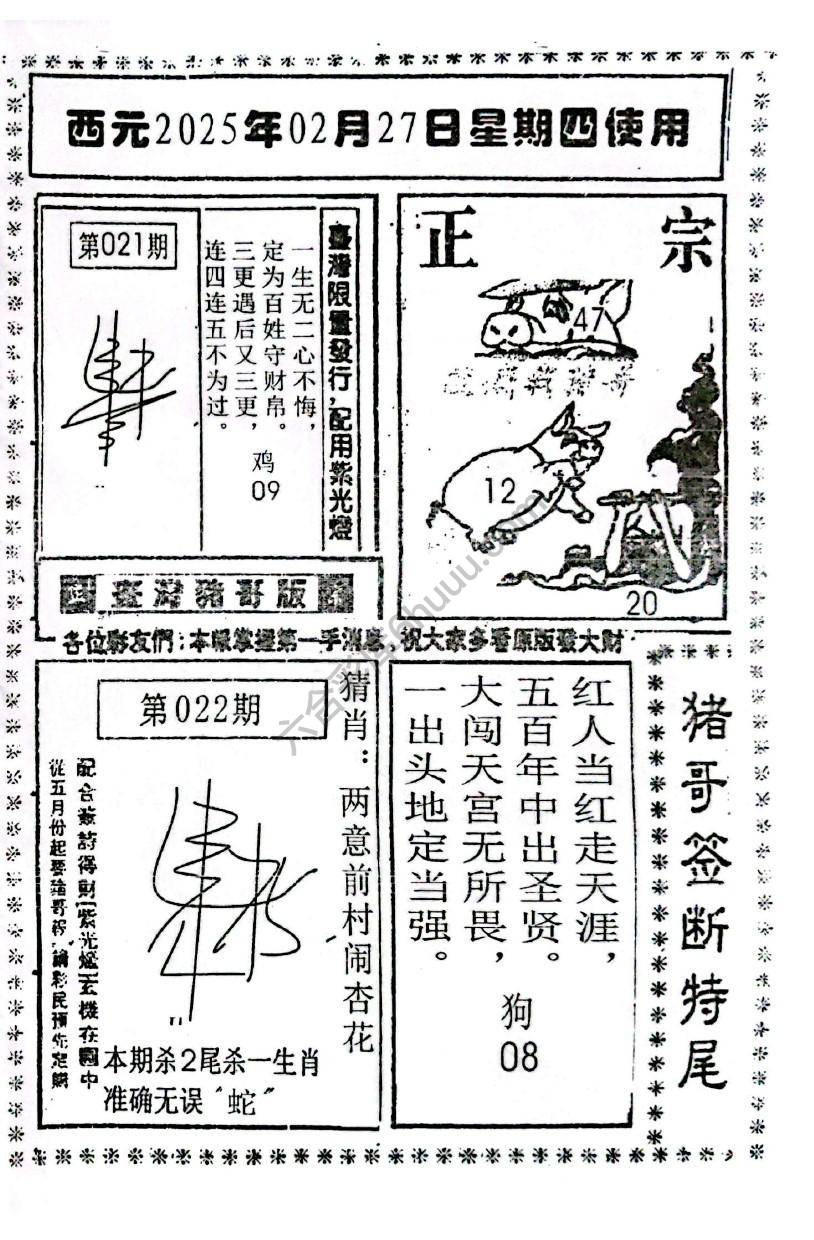 西元2025年02月27日星期四使用
第021期
臺灣限量發行,配用紫光燈
一生无二心不悔，
定为百姓守财帛。
三更遇后又三更，
连四连五不为过。
鸡
09
正 宗
47
12
20
臺灣豬哥版
各位彩友們:本報掌握第一手消息,祝大家多看原版發大財
第022期
猜肖：两意前村闹杏花
配合簽詩得財[紫光燈]玄機在圖中
從五月份起要豬哥報,請彩民預先定購
本期杀2尾杀一生肖
准确无误“蛇”
红人当红走天涯，
五百年中出圣贤。
大闯天宫无所畏，
一出头地定当强。
狗
08
猪哥签断特尾